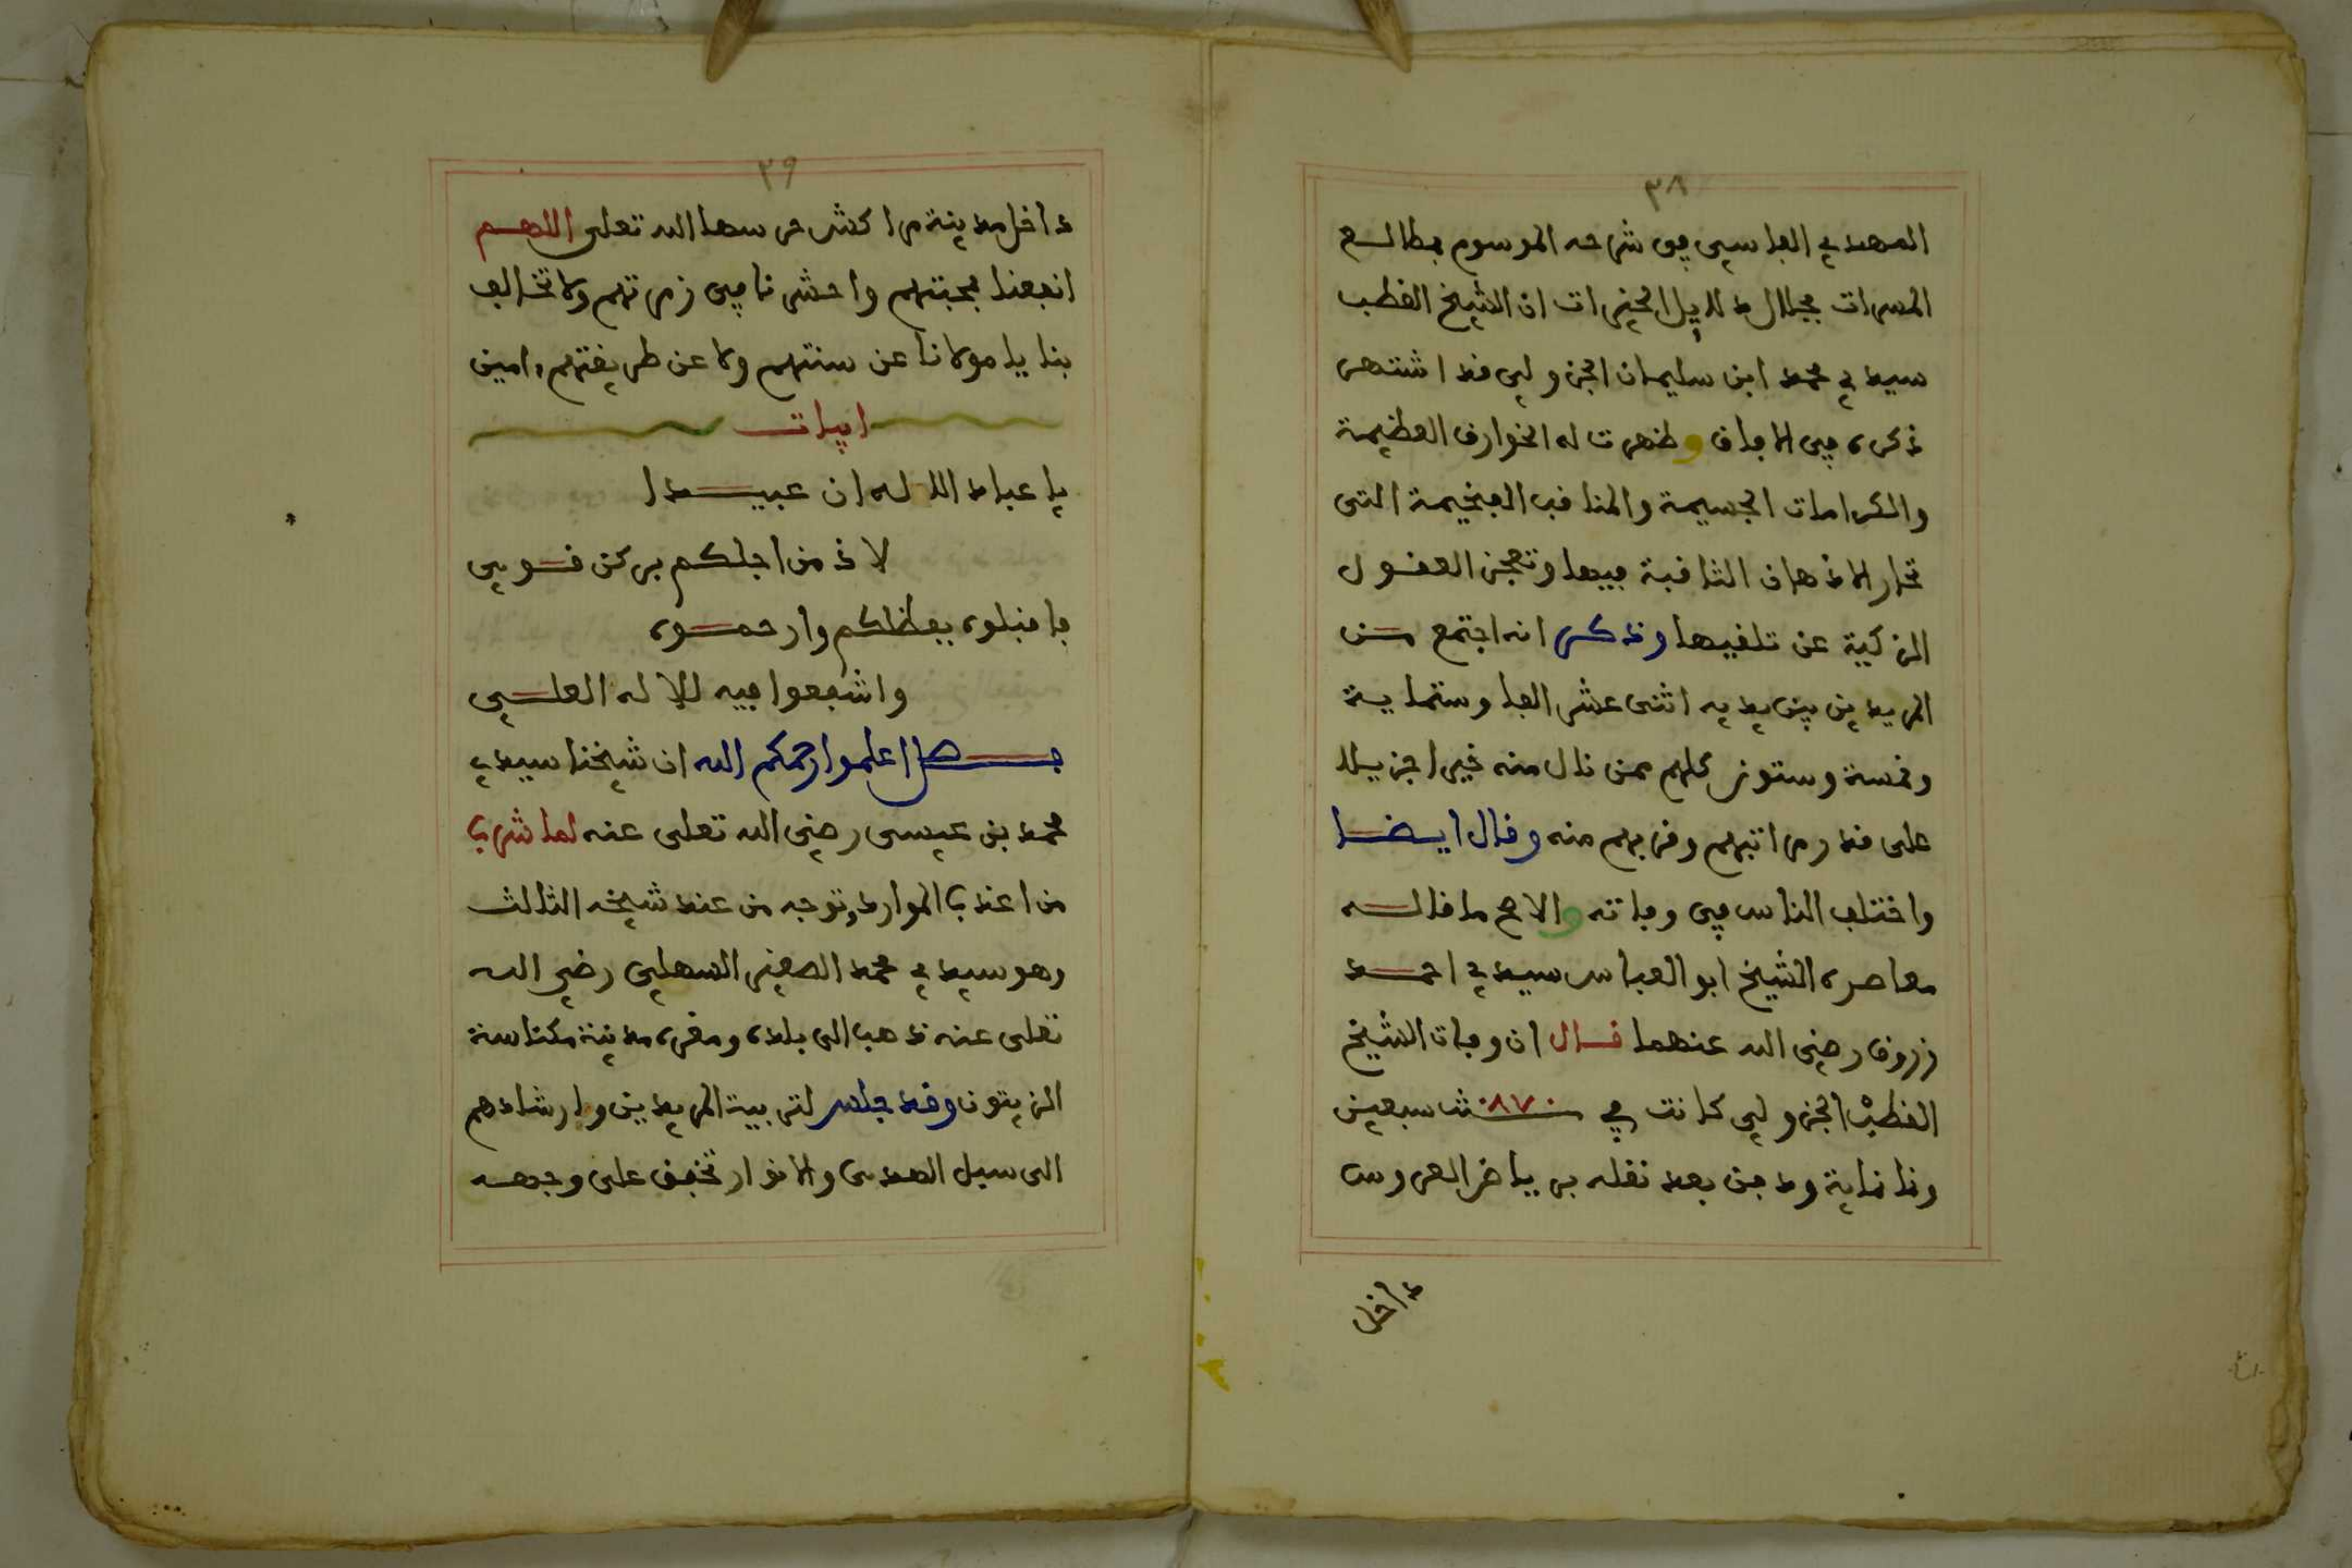 ٣٨
المهدي الفاسي في شرحه الموسوم بمطالع
المسرات بجلال دلايل الخيرات ان الشيخ القطب
سيدي محمد ابن سليمان الجزولي قد اشتهر
ذكره في الافاق وظهرت له الخوارق العظيمة
والكرامات الجسيمة والمناقب الفخيمة التي
تحار الاذهان الثاقبة فيها وتعجز العقول
الزكية عن تلقيها وذكر انه اجتمع من
المريدين بين يديه اثنى عشر الفا وستماية
وخمسة وستون كلهم ممن نال منه خيرا جزيلا
على قدر مراتبهم وقربهم منه وقال ايضا
واختلف الناس في وفاته والاصح ما قاله
معاصره الشيخ ابو العباس سيدي احمد
زروق رضي الله عنهما قال ان وفات الشيخ
القطب الجزولي كانت في سنة ٨٧٠ سبعين
وثمانماية ودفن بعد نقله برياض العروس
داخل
٣٩
داخل مدينة مراكش حرسها الله تعلى اللهم
انفعنا بمحبتهم واحشرنا في زمرتهم ولا تخالف
بنا يا مولانا عن سنتهم ولا عن طريقتهم ءامين
ابيات
يا عباد الاله ان عبيدا
لاذ من اجلكم بركن قوي
فاقبلوه بفضلكم وارحموه
واشفعوا فيه للاله العلي
فصل اعلموا رحمكم الله ان شيخنا سيدي
محمد بن عيسى رضي الله تعلى عنه لما شرب
من اعذب الموارد وتوجه من عند شيخه الثالث
وهو سيدي محمد الصغير السهلي رضي الله
تعلى عنه ذهب الى بلده ومقره مدينة مكناسة
الزيتون وقد جلس لتربية المريدين وارشادهم
الى سبل الهدى والانوار تخفق على وجهه